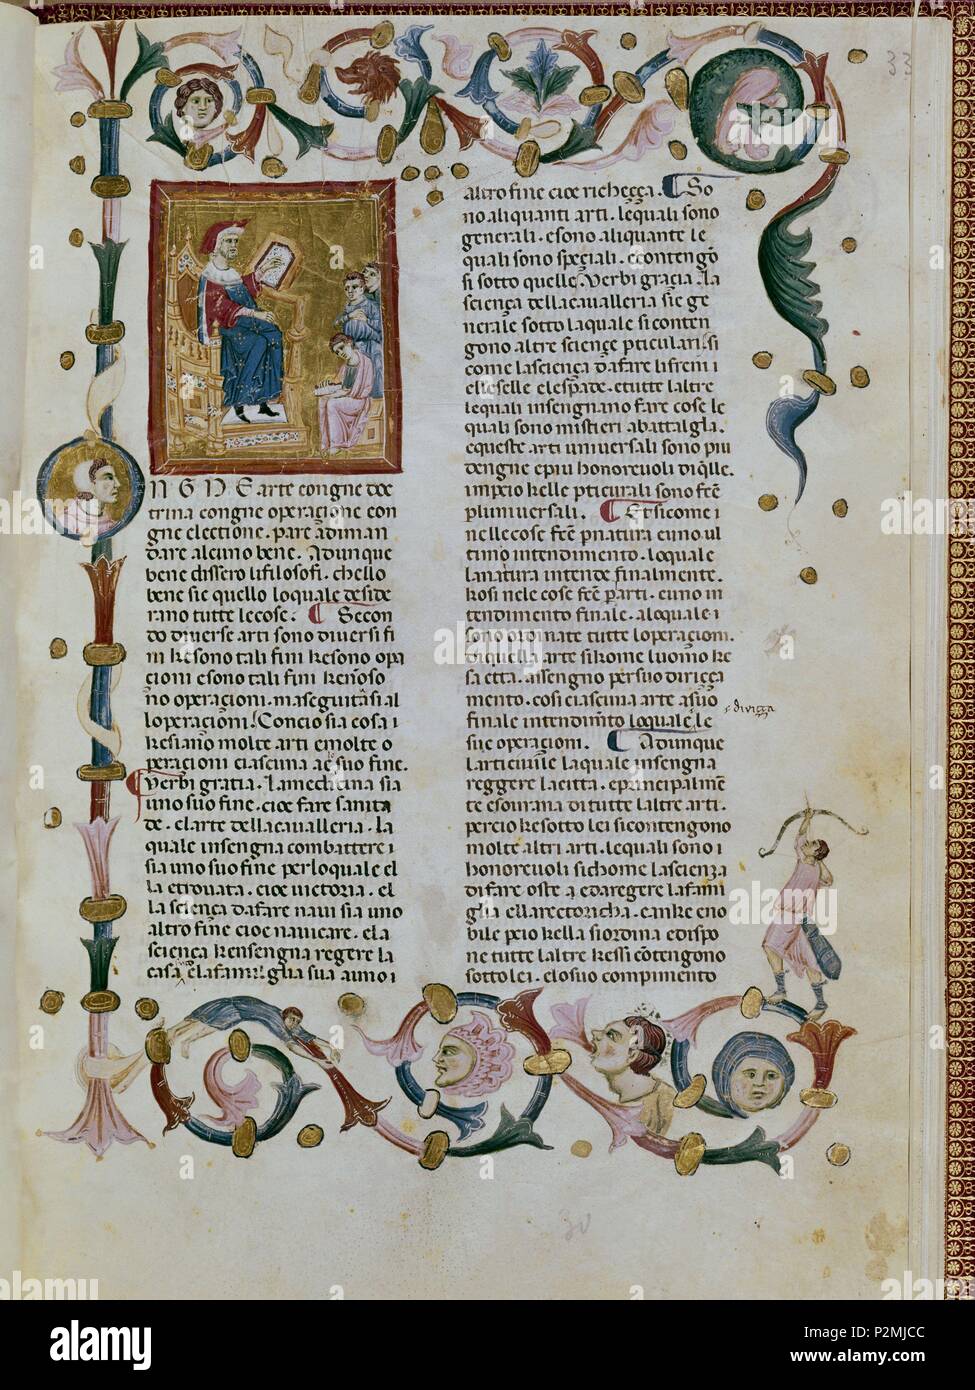 33
N G N E arte congne doc
trina congne operaçione con
gne electione. pare adiman
dare alcuno bene. Adunque
bene dissero li filosofi. chello
bene sie quello loquale deside
rano tutte lecose. ¶ Secon
do diverse arti sono diversi fi
ni ke sono tali fini ke sono opa
cioni e sono tali fini ke noso
no operacioni. ma seguitasi al
loperaçioni. Concio sia cosa i
ke siano molte arti e molte o
peracioni ciascuna a suo fine.
¶ Verbi gratia. La medicina sia
uno suo fine. cioe fare sanita
de. el arte della cavalleria. la
quale insengna combattere i
sia uno suo fine per loquale el
la e trovata. cioe victoria. el
la sciença da fare navi sia uno
altro fine cioe navicare. e la
sciença ke nsengna regere la
casa e la famiglia sua a uno i
altro fine cioe richeçça. ¶ So
no aliquanti arti. le quali sono
generali. e sono aliquante le
quali sono speciali. e contengo
si sotto quelle. Verbi gracia. la
sciença della cavalleria sie ge
nerale sotto la quale si conten
gono altre sciençe pticulari. si
come la sciença da fare li freni i
elle selle e le spade. e tutte laltre
le quali insengnano fare cose le
quali sono mistieri a battaglia.
e queste arti universali sono piu
dengne e piu honorevoli di qlle.
impcio ke lle pticulari sono fcte
pluniversali. ¶ Et sicome i
nelle cose fcte p natura e uno ul
timo intendimento. lo quale
la natura intende finalmente.
kosi nele cose fcte p arti. e uno in
tendimento finale. al quale i
sono ordinate tutte loperacioni.
di quella arte sikome luomo ke
saetta. a ssengno per suo diriçça
mento. cosi ciascuna arte a suo
finale intendimto lo quale le
sue operacioni. ¶ Adunque
larti civile la quale insengna
reggere la citta. e pancipalmen
te e sovrana di tutte laltre arti.
percio ke sotto lei si contengono
molte altri arti. le quali sono i
honorevoli sichome la sciença
di fare oste a ed a regere la fami
glia e lla rectoricha. e anke e no
bile pcio ke lla si ordina e dispo
ne tutte laltre ke ssi contengono
sotto lei. e lo suo compimento
diriçça
30
alamy stock photo
alamy
Image ID: P2MJCC
www.alamy.com